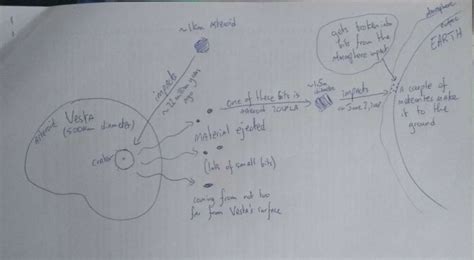 ~1km asteroid
impacts
~22 million years
ago
asteroid Vesta
(500km diameter)
crater
material ejected
(lots of small bits)
coming from not too
far from Vesta's surface
one of these bits is
asteroid 2018 LA
~1.5m
impacts
on June 2,
gets broken into
bits from the
atmosphere impact
atmosphere
surface
EARTH
a couple of
meteorites make
it to the
ground